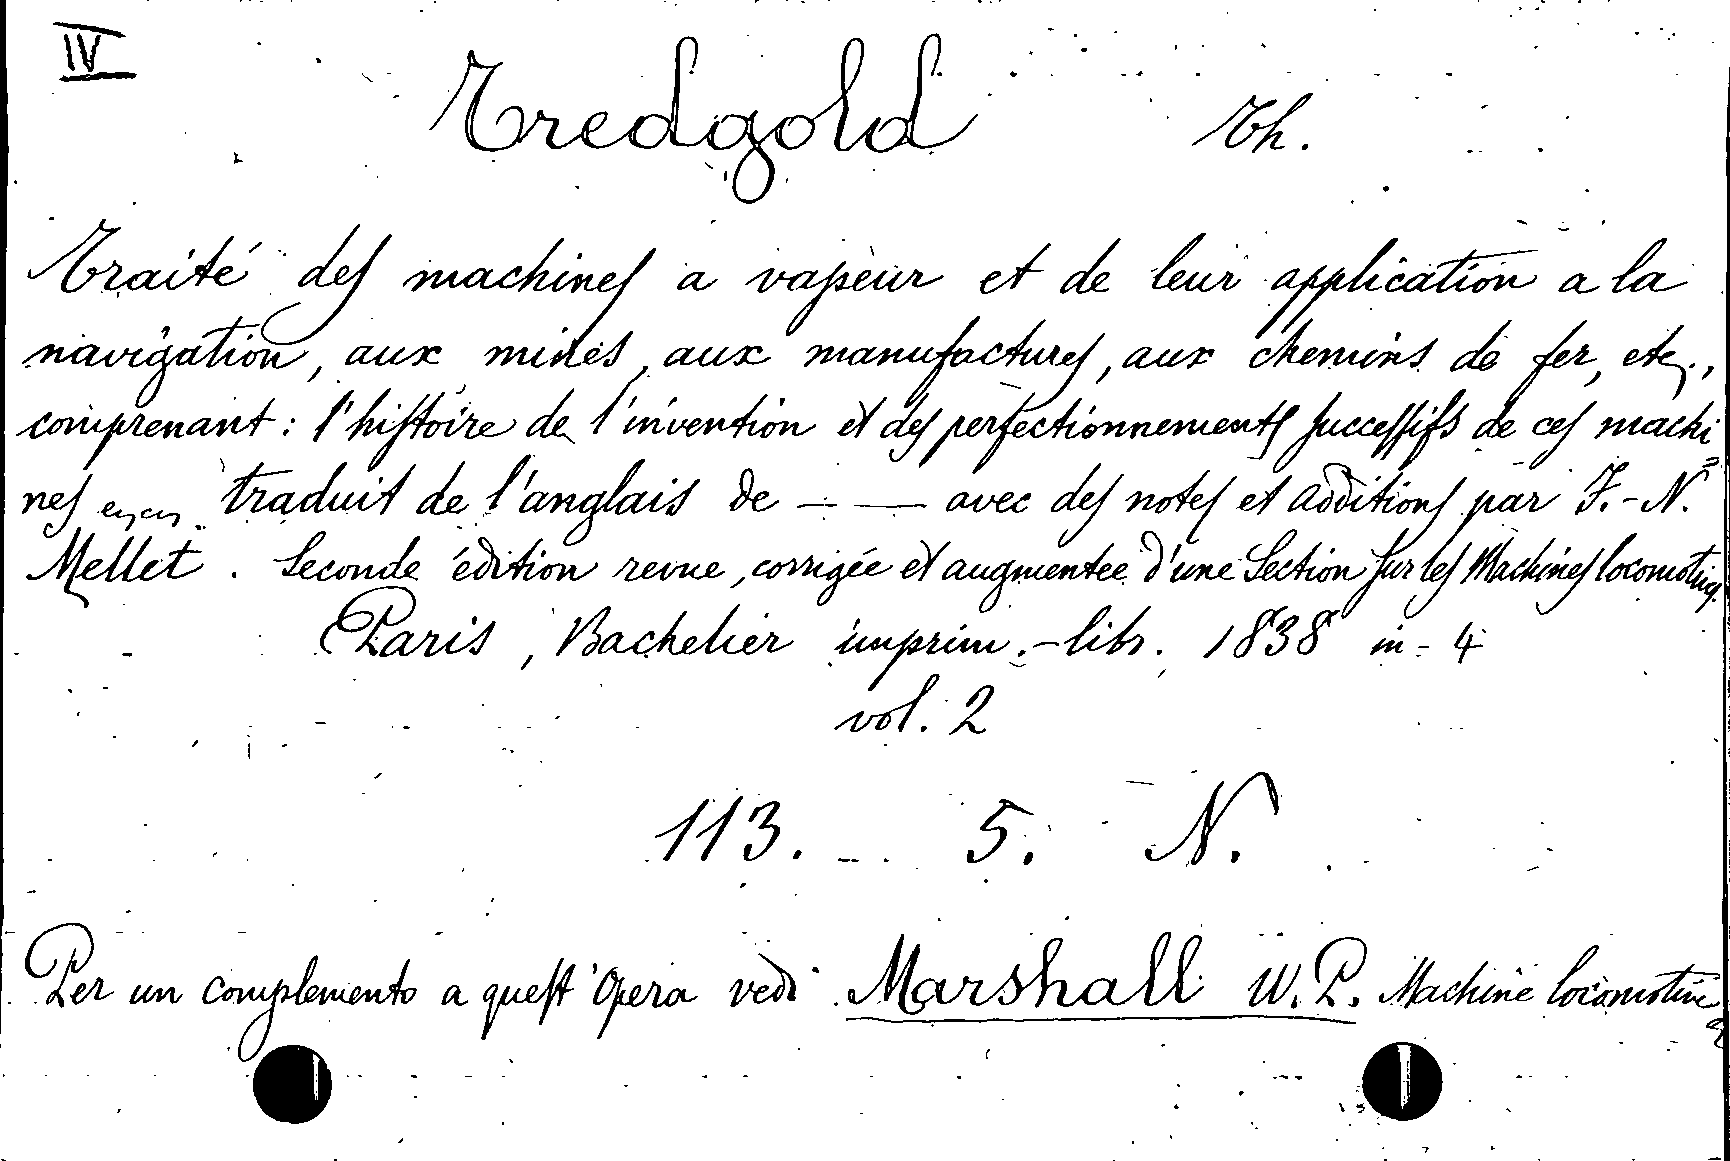 IV
Tredgold Th.
Traité des machines a vapeur et de leur application a la
navigation, aux mines, aux manufactures, aux chemins de fer, etc.,
comprenant: l'histoire de l'invention et des perfectionnements successifs de ces machi
nes traduit de l'anglais de — — avec des notes et additions par F.-N.
Mellet. Seconde édition revue, corrigée et augmentee d'une Section sur les Machines locomotives
Paris, Bachelier imprim.-libr. 1838 in-4
vol. 2
113. 5. N.
Per un complemento a quest'Opera vedi Marshall W. P. Machine locomotive